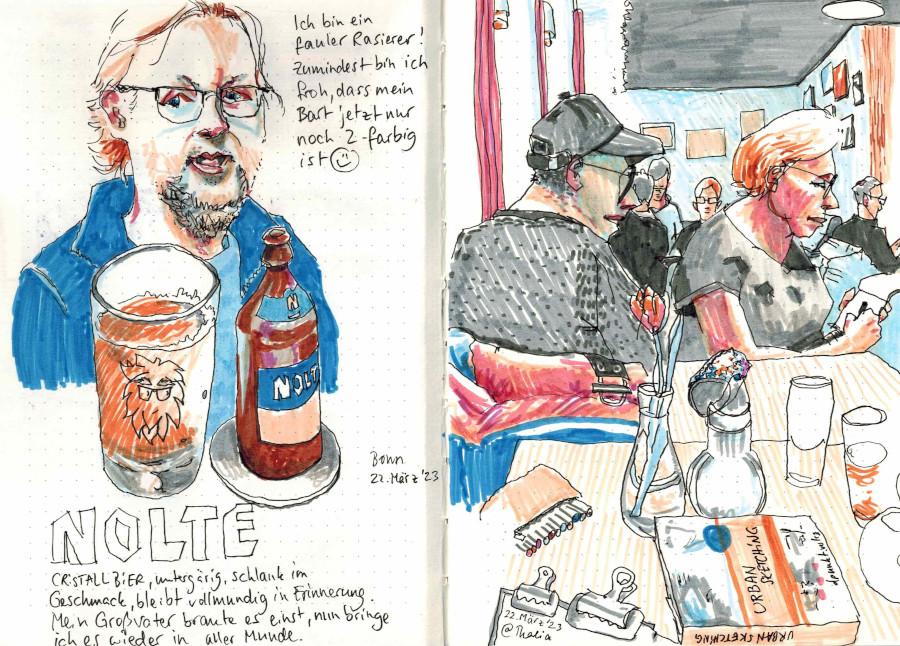 Ich bin ein
fauler Rasierer!
Zumindest bin ich
froh, dass mein
Bart jetzt nur
noch 2-farbig
ist
NOLTE
Bonn
22. März '23
NOLTE
CRISTALL BIER, untergärig, schlank im
Geschmack, bleibt vollmundig in Erinnerung.
Mein Großvater braute es einst, nun bringe
ich es wieder in aller Munde.
URBAN
SKETCHING
URBAN SKETCHING
22. März '23
@Thalia